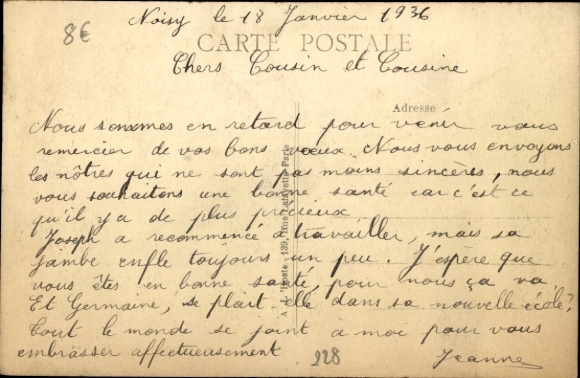 Noisy le 18 Janvier 1936
8€
CARTE POSTALE
Chers Cousin et Cousine
Adresse
Nous sommes en retard pour venir vous
remercier de vos bons voeux. Nous vous envoyons
les nôtres qui ne sont pas moins sincères, nous
vous souhaitons une bonne santé car c'est ce
qu'il y a de plus précieux
Joseph a recommencé à travailler, mais sa
jambe enfle toujours un peu. J'espère que
vous êtes en bonne santé, pour nous ça va.
Et Germaine, se plait-elle dans sa nouvelle école?
Tout le monde se joint à moi pour vous
embrasser affectueusement
Jeanne
228
139, Rue Lafayette Paris